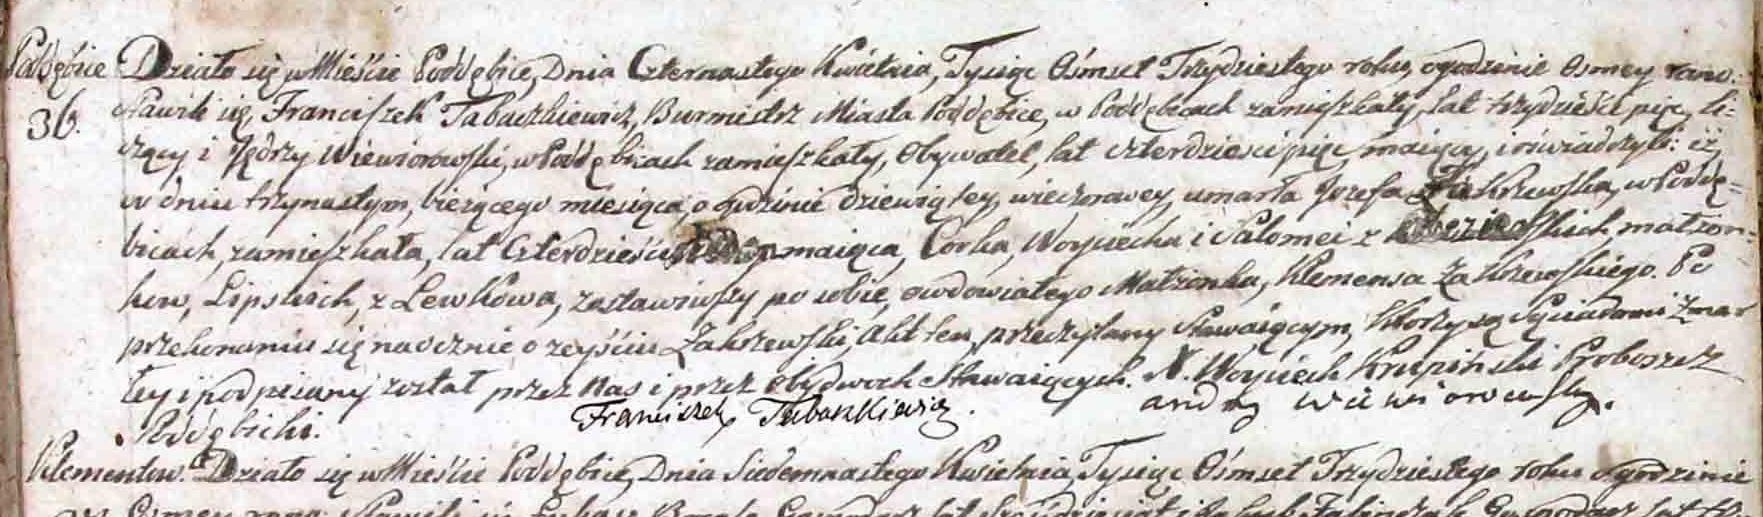 Poddębice Działo się w Mieście Poddębice, Dnia Czternastego Kwietnia, Tysiąc Ośmset Trzydziestego roku, o godzinie Osmey rano:
36. stawili się, Franciszek Tabaszkiewicz, Burmistrz Miasta Poddębice, w Poddębicach zamieszkały, lat trzydzieści pięć li-
czący i Jędrzy Wiewiorowski, w Poddębicach zamieszkały, Obywatel, lat czterdzieści pięć maiący, i oświadczyli: iż
w dniu trzynastym, bieżącego miesiąca, o godzinie dziewiątey, wieczorowey, umarła Jozefa Zakrzewska, w Poddę=
bicach, zamieszkała, lat Czterdzieści maiąca, Corka, Woyciecha i Salomei z małżon-
kow, Lipskich, z Lewkowa, zostawiwszy po sobie, owdowiałego Małżonka, Klemensa Zakrzewskiego. Po
przekonaniu się naocznie o zeyściu Zakrzewski, Akt ten przeczytany Stawaiącym, ktorzy są Sąsiadami Zmar
łey i podpisany został przez Nas i przez obydwoch Stawaiących. X. Woyciech Krupiński Proboszcz
Poddębicki. Franciszek Tabaszkiewicz. andrzy wiewiorowsky.
Klementow. Działo się w Mieście Poddębice, Dnia Siedemnastego Kwietnia, Tysiąc Ośmset Trzydziestego roku o godzinie
Osmey rano: Stawili się Łukasz Gospodarz lat